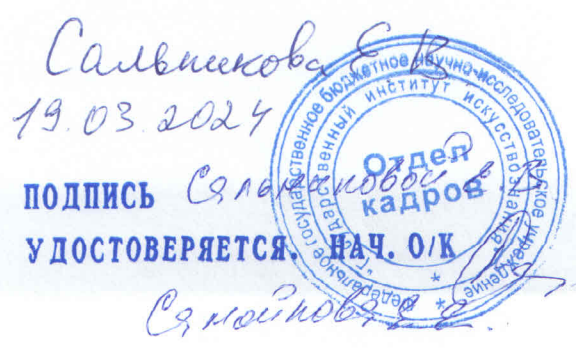 Сальникова Е В
19.03.2024
ПОДПИСЬ Сальниковой Е.В.
УДОСТОВЕРЯЕТСЯ. НАЧ. О/К
Федеральное государственное бюджетное научно-исследовательское учреждение
"Государственный институт искусствознания"
Отдел
кадров